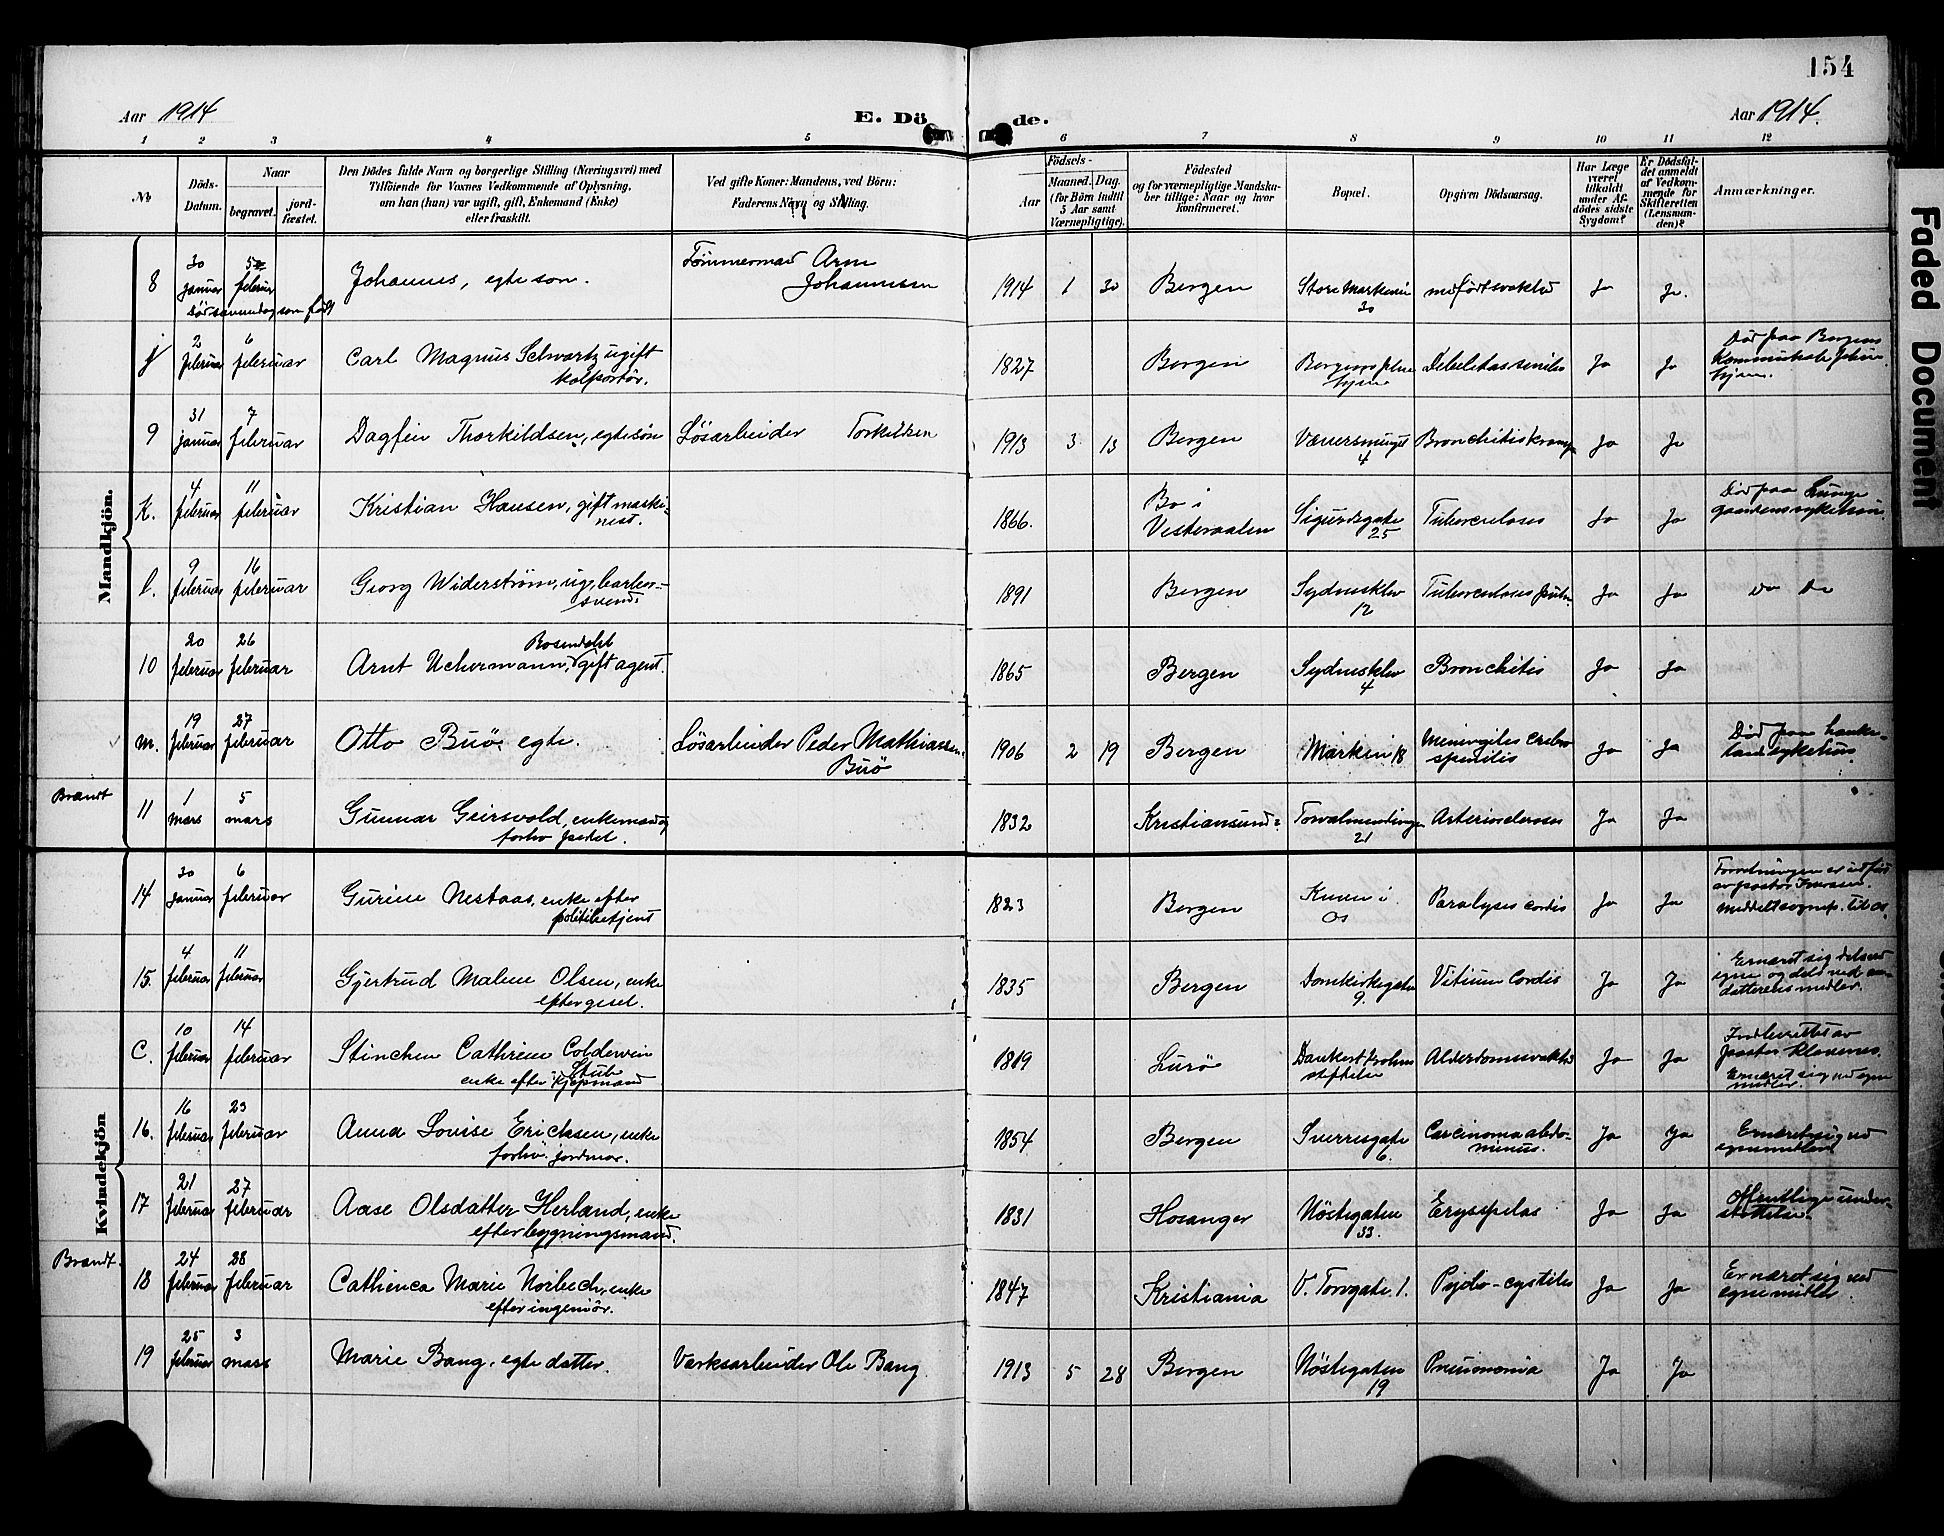 154
Aar 1914
E. Döde.
Aar 1914.
1 2 3 4 5 6 7 8 9 10 11 12
No
Döds-Datum.
Naar
begravet.
jord-fæstet.
Den Dödes fulde Navn og borgerlige Stilling (Næringsvei) med
Tilföiende for Voxnes Vedkommende af Oplysning,
om han (hun) var ugift, gift, Enkemand (Enke)
eller fraskilt.
Ved gifte Koner: Mandens, ved Börn:
Faderens Navn og Stilling.
Födsels-
Aar
Maaned. Dag.
(for Börn indtil
5 Aar samt
Værnepligtige).
Födested
og for værnepligtige Mandska-
ber tillige: Naar og hvor
konfirmeret.
Bopæl.
Opgiven Dödsaarsag.
Har Læge
været
tilkaldt
under Af-
dödes sidste
Sygdom?
Er Dödsfal-
det anmeldt
af Vedkom-
mende for
Skifteretten
(Lensman-
den)?
Anmærkninger.
Mandkjön.
8 30 januar 5 februar Johannes, egte søn. Tømmermand Arne Johannesen 1914 1 30 Bergen Store Markevei 30 medfødt svakhed Ja Ja.
Død samme dag som født
j 2 februar 6 februar Carl Magnus Schwartz ugift kolportør. 1827 Bergen Bergens pleiehjem Debilitas senilis Ja Ja Død paa Bergens kommunale pleiehjem.
9 31 januar 7 februar Dagfin Thorkildsen, egte søn Løsarbeider Torkildsen 1913 3 13 Bergen 4 Bronchitis krampe Ja Ja
K. 4 februar 11 februar Kristian Hansen, gift maskinist. 1866. Bø i Vesteraalen Sigurdsgate 25 Tuberculosis Ja Ja Død paa Lungegaardens sykehus.
l. 9 februar 16 februar Georg Widerstrøm, ug. barbersvend. 1891 Bergen Sydnesklev 12 Tuberculosis pulm. Ja Ja Do Do
10 20 februar 26 februar Arnt Uchermann Rosendahl, gift agent. 1865 Bergen Sydnesklev 4 Bronchitis Ja Ja
m. 19 februar 27 februar Otto Buø, egte. Løsarbeider Peder Mathiassen Buø 1906 2 19 Bergen Marken 18 Meningitis cerebrospinalis Ja Ja Død paa Haukeland sykehus.
Brandt 11 1 mars 5 mars Gunnar Geirsvold, enkemand og forhv. 1832 Kristiansund N. Torvalmenningen 21 Arteriosclerosis Ja Ja
Kvindekjön
14 30 januar 6 februar Gurine Nestaas, enke efter politibetjent 1823 Bergen i Os Paralysis cordis Ja Ja Forretningen er utført av pastor Meddelt sognep. til Os.
15. 4 februar 11 februar Gjertrud Malene Olsen, enke efter gesel. 1835 Bergen Domkirkegaten 9. Vitium Cordis Ja Ja Ernæret sig dels ved egne og dels ved datterens midler.
C. 10 februar 14 februar Stinchen Cathrine Coldevin Stub enke efter kjøpmand 1819 Lurø Dankert Krohns stiftelse Alderdomssvakhed Ja Ja Indberettet av pastor Klaveness. Ernæret sig ved egne midler.
16. 16 februar 23 februar Anna Lovise Ericksen, enke forhv. jordmor. 1854 Bergen Sverresgate 6. Carcinoma abdominus. Ja Ja Ernæret sig ved egne midler
17 21 februar 27 februar Aase Olsdatter Herland, enke efter bygningsmand. 1831 Hosanger Nøstegaten 33. Erysipelas Ja Ja Offentlig understøttelse.
Brandt. 18 24 februar 28 februar Cathinca Marie Norbech, enke efter ingeniør. 1847 Kristiania V. Torvgate. 1. Pyelo-cystitis Ja Ja Ernæret sig ved egne midler
19 25 februar 3 mars Marie Bang, egte datter. Værksarbeider Ole Bang 1913 5 28 Bergen Nøstegaten 19 Pneumonia Ja Ja
Faded Document